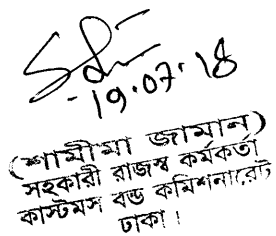 19.07.18
(শামীমা জামান)
সহকারী রাজস্ব কর্মকর্তা
কাস্টমস বন্ড কমিশনারেট
ঢাকা।